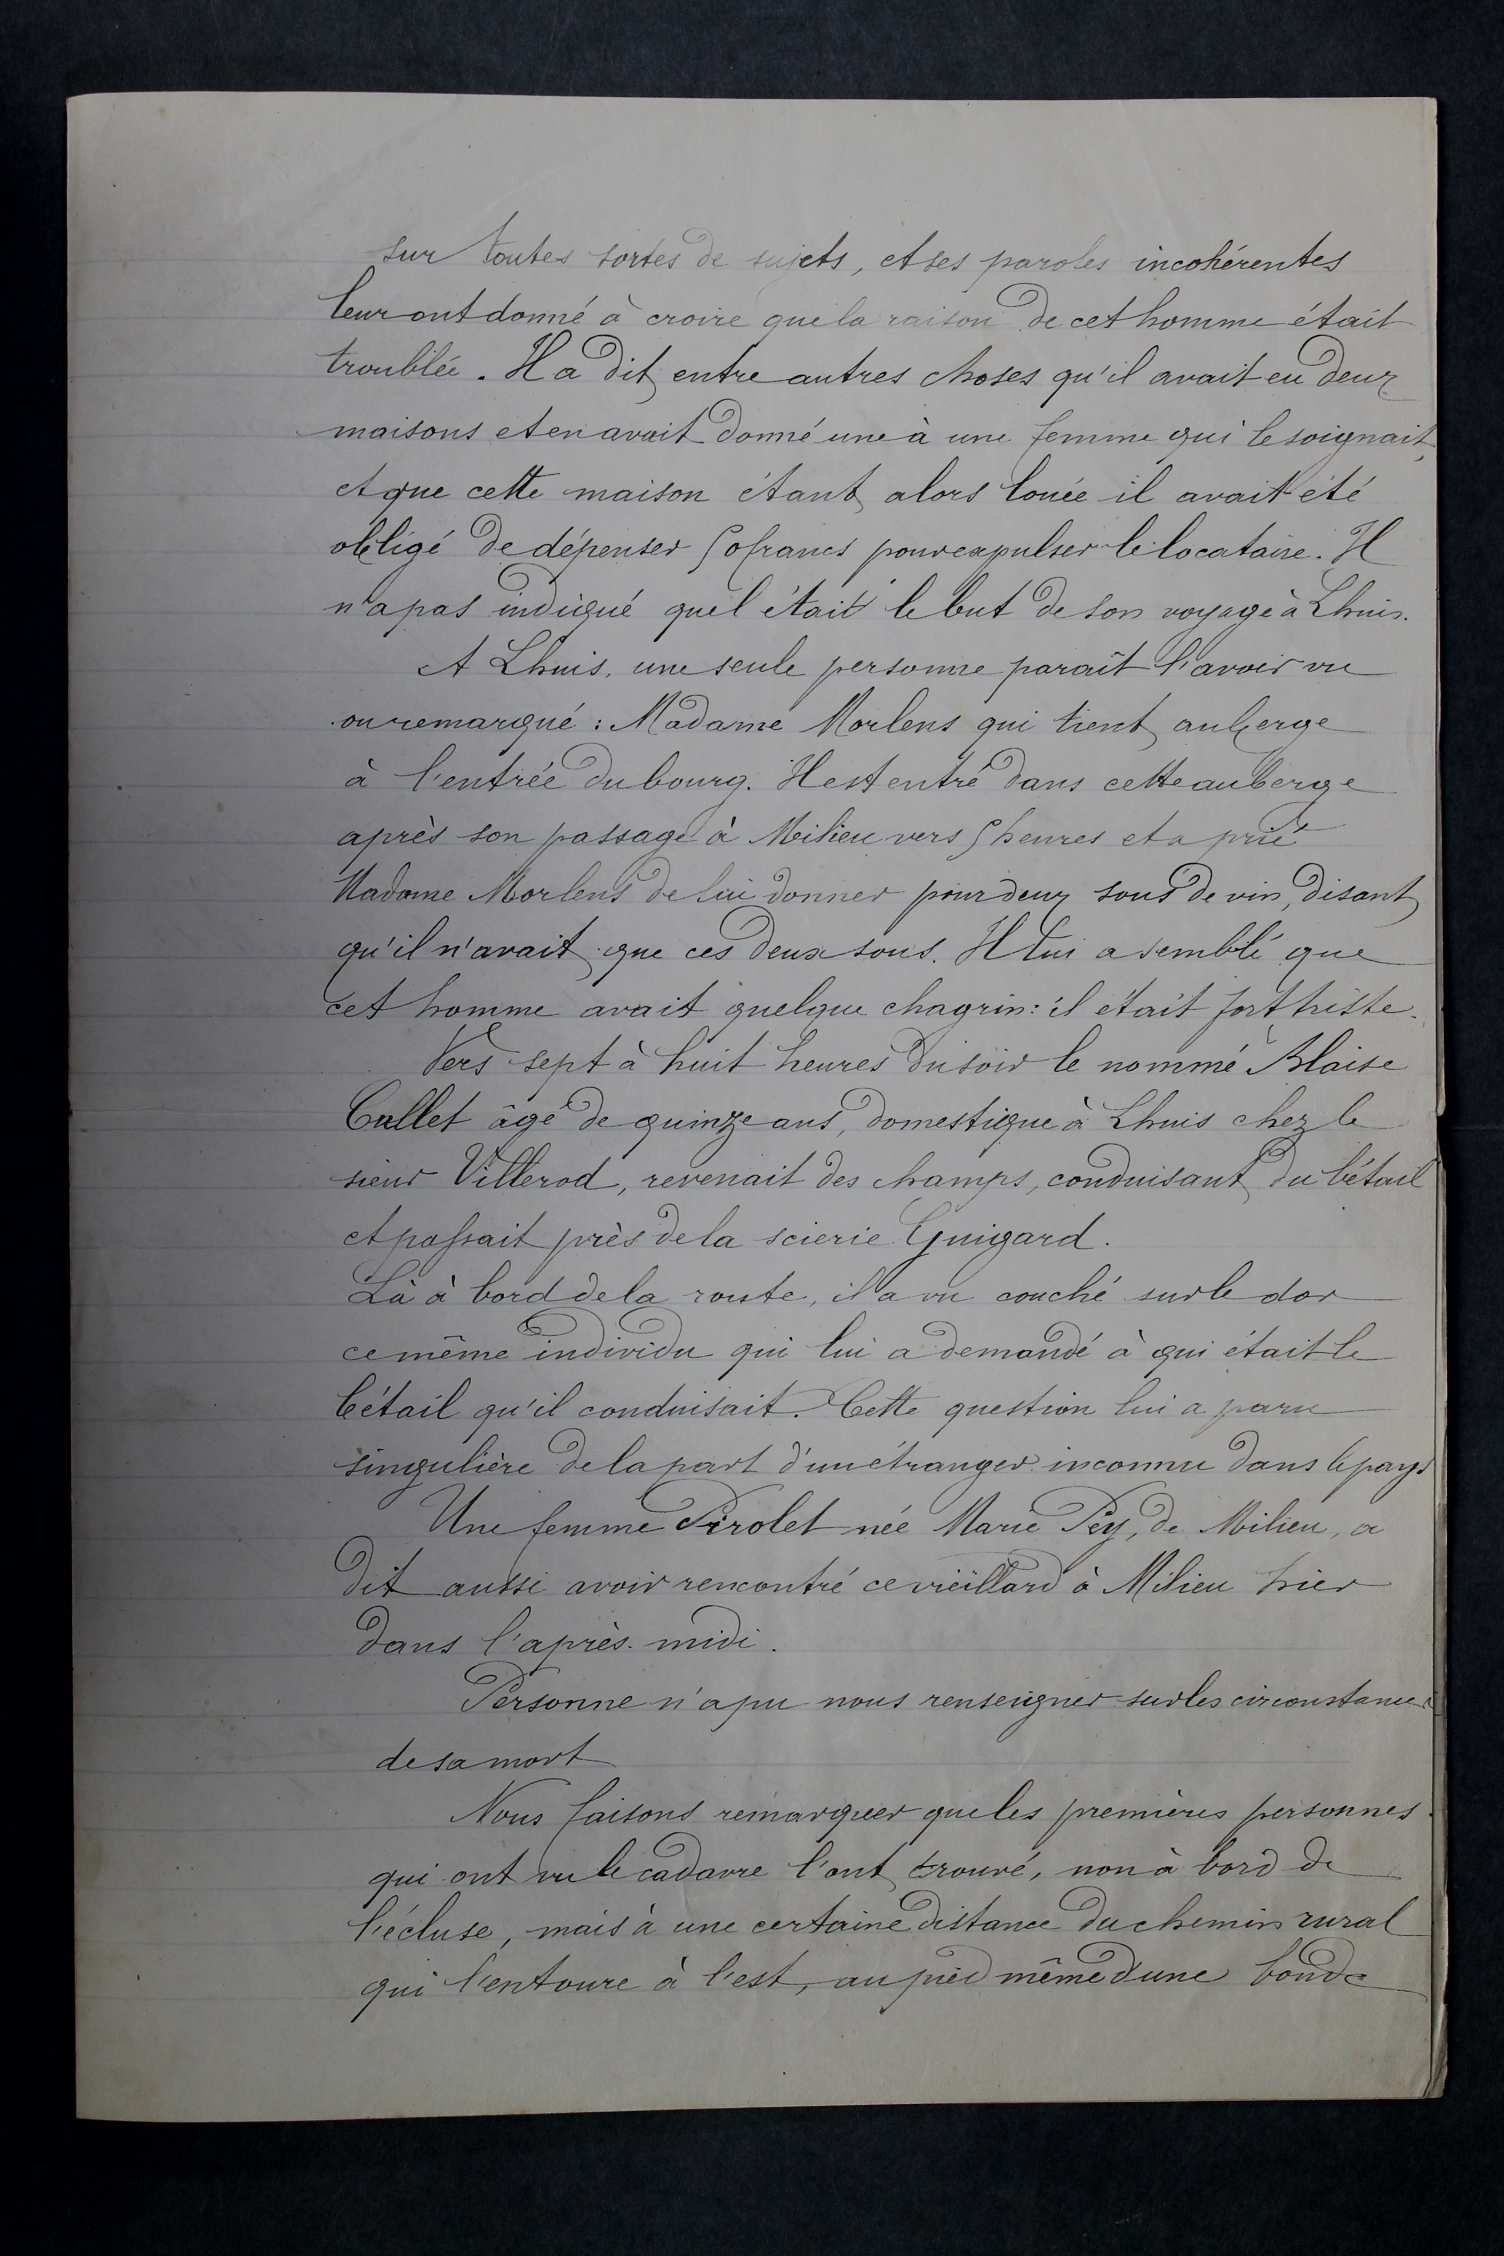 sur toutes sortes de sujets, et ses paroles incohérentes
leur ont donné à croire que la raison de cet homme était
troublée. Il a dit entre autres choses qu'il avait eu deux
maisons et en avait donné une à une femme qui le soignait,
et que cette maison étant alors louée il avait été
obligé de dépenser 50 francs pour expulser le locataire. Il
n'a pas indiqué quel était le but de son voyage à Lhuis.
A Lhuis, une seule personne paraît l'avoir vu
ou remarqué : Madame Morlens qui tient auberge
à l'entrée du bourg. Il est entré dans cette auberge
après son passage à Milieu vers 5 heures et a prié
Madame Morlens de lui donner pour deux sous de vin, disant
qu'il n'avait que ces deux sous. Il lui a semblé que
cet homme avait quelque chagrin : il était fort triste.
Vers sept à huit heures du soir le nommé Blaise
Cullet âgé de quinze ans, domestique à Lhuis chez le
sieur Villerod, revenait des champs, conduisant du bétail
et passait près de la scierie Guigard.
Là à bord de la route, il a vu couché sur le dos
ce même individu qui lui a demandé à qui était le
bétail qu'il conduisait. Cette question lui a paru
singulière de la part d'un étranger inconnu dans le pays
Une femme Pirolet née Marie Pey, de Milieu, a
dit aussi avoir rencontré ce vieillard à Milieu hier
dans l'après-midi.
Personne n'a pu nous renseigner sur les circonstances
de sa mort
Nous faisons remarquer que les premières personnes
qui ont vu le cadavre l'ont trouvé, non à bord de
l'écluse, mais à une certaine distance du chemin rural
qui l'entoure à l'est, au pied même d'une bonde